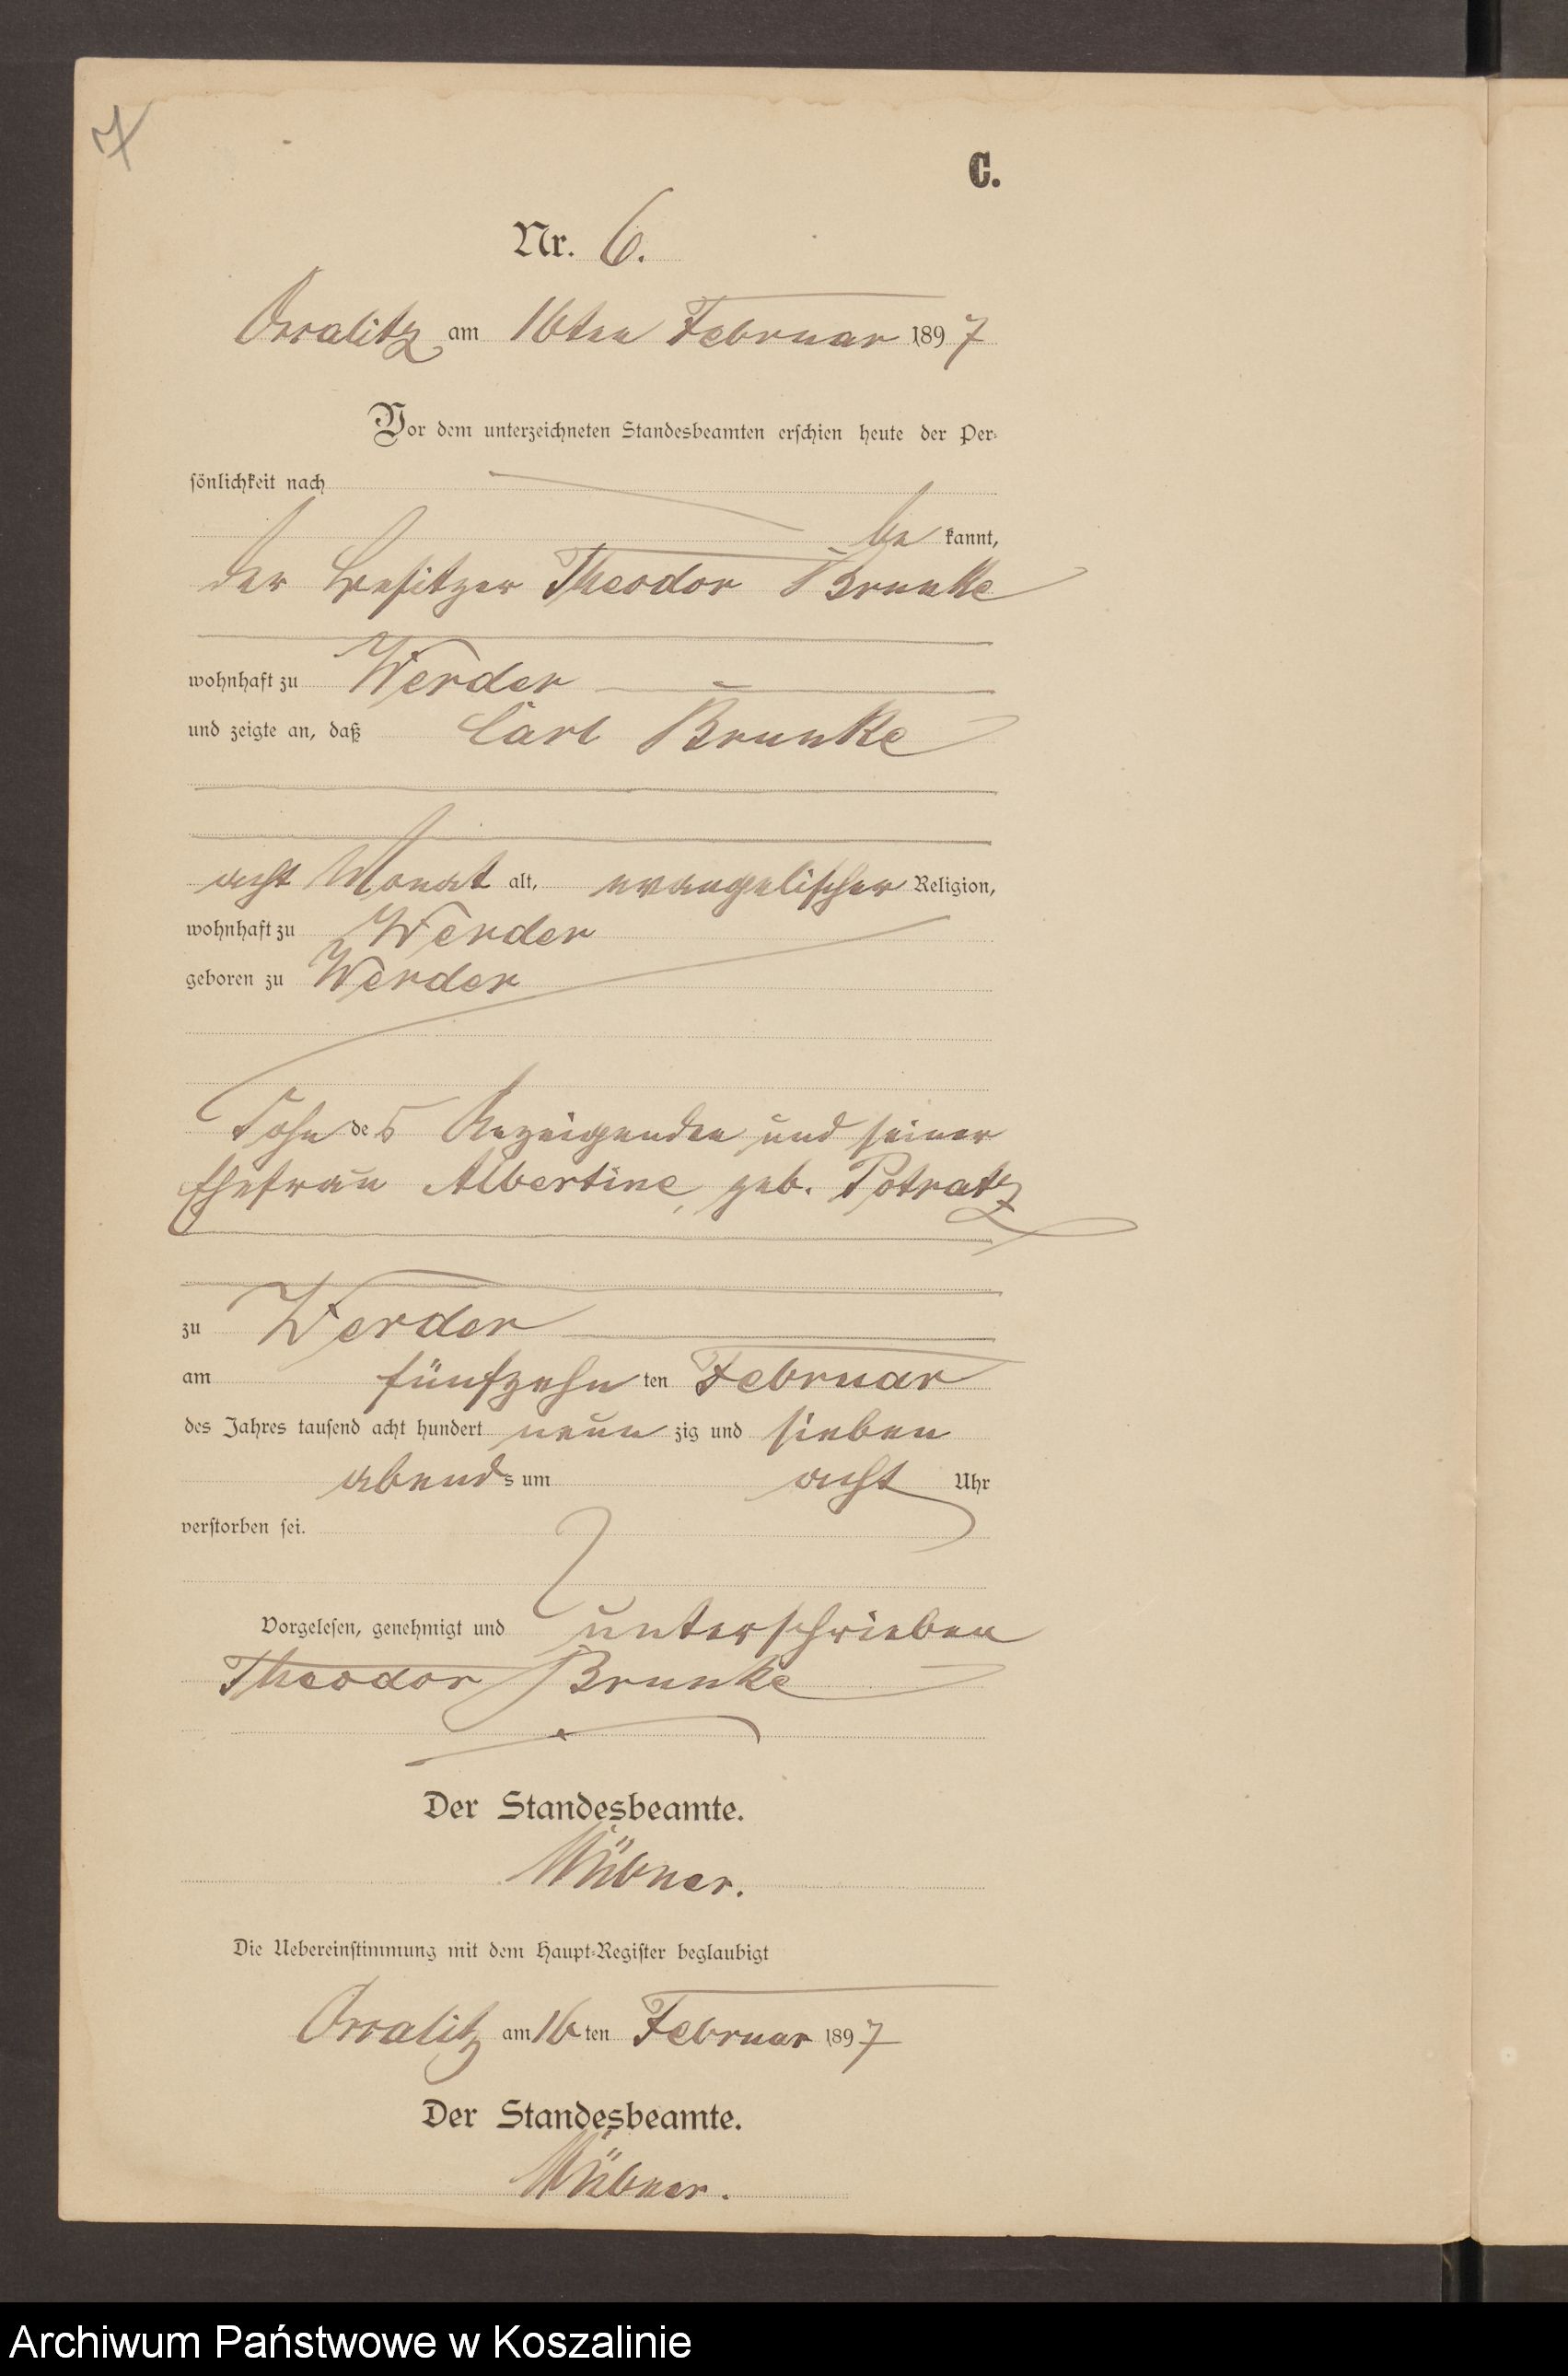 7
C.
Nr. 6.
am 16ten Februar 1897
Vor dem unterzeichneten Standesbeamten erschien heute der Per-
sönlichkeit nach
be kannt,
der Besitzer Theodor Brunke
wohnhaft zu Werder
und zeigte an, daß Carl Brunke
acht Monat alt, evangelischer Religion,
wohnhaft zu Werder
geboren zu Werder
Sohn des Anzeigenden und seiner
Ehefrau Albertine, geb. Potratz
zu Werder
am fünfzehn ten Februar
des Jahres tausend acht hundert neun zig und sieben
abends um acht Uhr
verstorben sei.
Vorgelesen, genehmigt und unterschrieben
Theodor Brunke
Der Standesbeamte.
Die Uebereinstimmung mit dem Haupt-Register beglaubigt
am 16 ten Februar 1897
Der Standesbeamte.
Archiwum Państwowe w Koszalinie